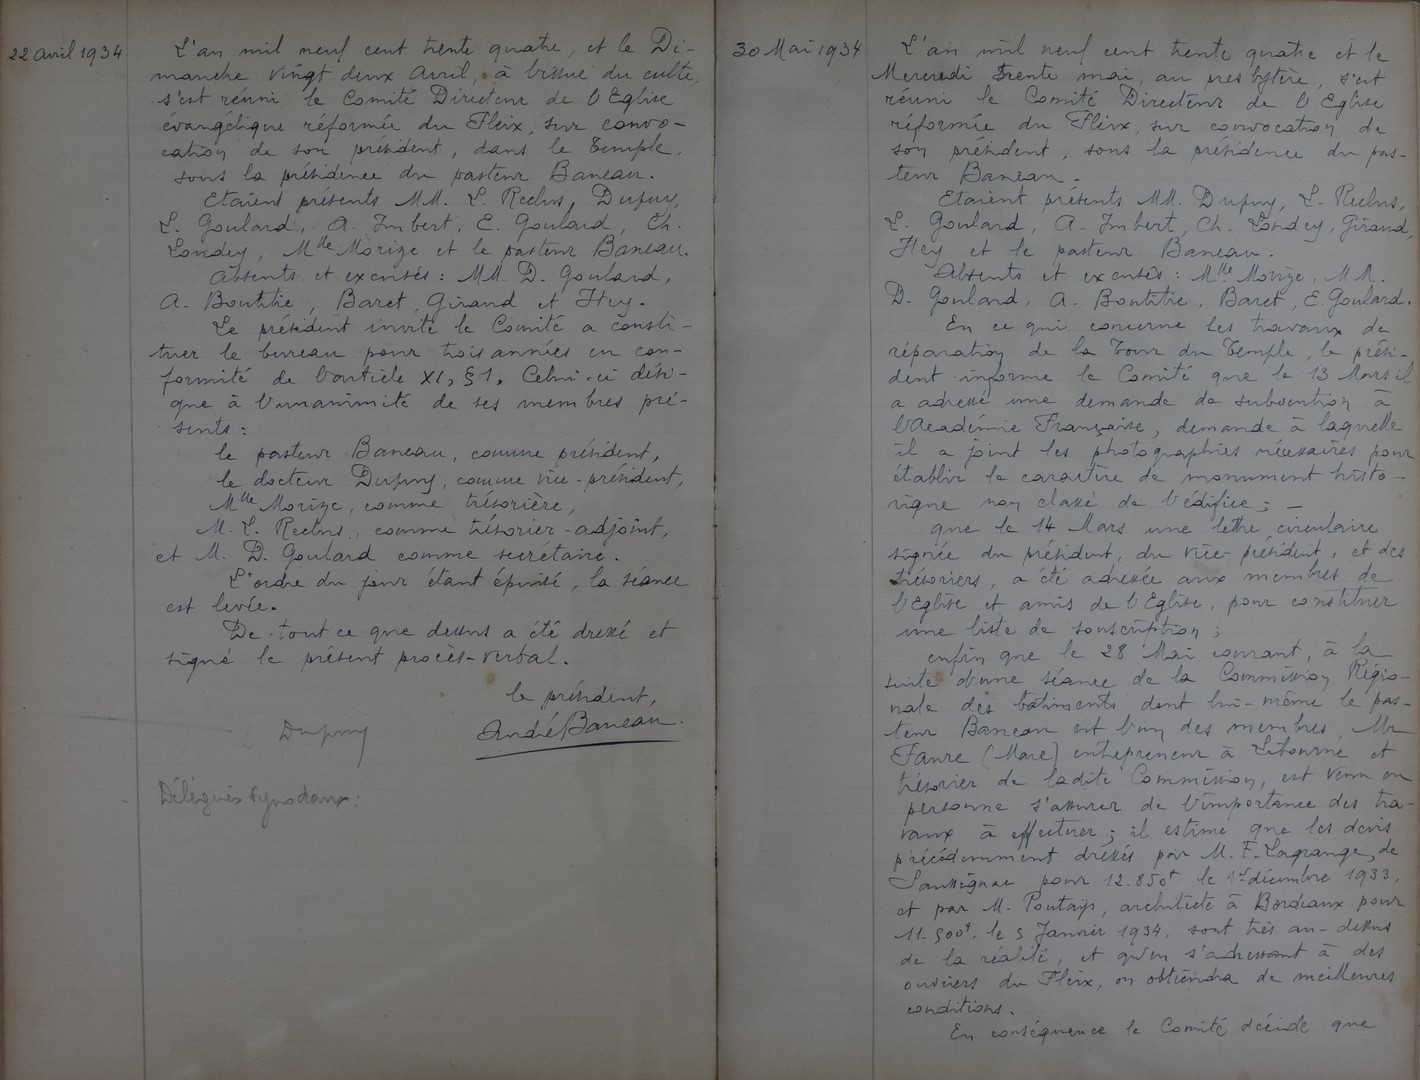 22 avril 1934
L'an mil neuf cent trente quatre, et le Di-
manche vingt deux avril, à l'issue du culte,
s'est réuni le Comité Directeur de l'Eglise
évangélique réformée du Fleix, sur convo-
cation de son président, dans le Temple,
sous la présidence du pasteur Baneau.
Etaient présents MM. L. Reclus, Dupuy,
L. Goulard, A. Imbert, E. Goulard, Ch.
Londey, Mlle Morize et le pasteur Baneau.
Absents et excusés : MM. D. Goulard,
A. Bouthié, Baret, Giraud et Hey.
Le président invite le Comité a consti-
tuer le bureau pour trois années en con-
formité de l'article XI, § 1, Celui-ci dési-
gne à l'unanimité de ses membres pré-
sents :
le pasteur Baneau, comme président,
le docteur Dupuy, comme vice-président,
Mlle Morize, comme trésorière,
M. L. Reclus, comme trésorier-adjoint,
et M. D. Goulard comme secrétaire.
L'ordre du jour étant épuisé, la séance
est levée.
De tout ce que dessus a été dressé et
signé le présent procès-verbal.
le président,
Dupuy
André Baneau.
Délégués synodaux :
30 Mai 1934
L'an mil neuf cent trente quatre et le
Mercredi trente mai, au presbytère, s'est
réuni le Comité Directeur de l'Eglise
réformée du Fleix, sur convocation de
son président, sous la présidence du pas-
teur Baneau.
Etaient présents MM. Dupuy, L. Reclus,
L. Goulard, A. Imbert, Ch. Londey, Giraud,
Hey et le pasteur Baneau.
Absents et excusés : Mlle Morize, MM.
D. Goulard, A. Bouthié, Baret, E. Goulard.
En ce qui concerne les travaux de
réparation de la Tour du Temple, le prési-
dent informe le Comité que le 13 Mars il
a adressé une demande de subvention à
l'Académie Française, demande à laquelle
il a joint les photographies nécessaires pour
établir le caractère de monument histo-
rique non classé de l'édifice ; -
que le 14 Mars une lettre circulaire
signée du président, du vice-président, et des
trésoriers, a été adressée aux membres de
l'Eglise et amis de l'Eglise, pour constituer
une liste de souscription ;
enfin que le 28 Mai courant, à la
suite d'une séance de la Commission Régio-
nale des bâtiments dont lui-même le pas-
teur Baneau est l'un des membres, Mr
Faure (Marc) entrepreneur à Libourne et
trésorier de ladite Commission, est venu en
personne s'assurer de l'importance des tra-
vaux à effectuer ; il estime que les devis
précédemment dressés par M. F. Lagrange, de
Saussignac pour 12.850f le 1er décembre 1933,
et par M. Poutays, architecte à Bordeaux pour
11.500f, le 5 Janvier 1934, sont très au-dessus
de la réalité, et qu'en s'adressant à des
ouvriers du Fleix, on obtiendra de meilleures
conditions.
En conséquence le Comité décide que